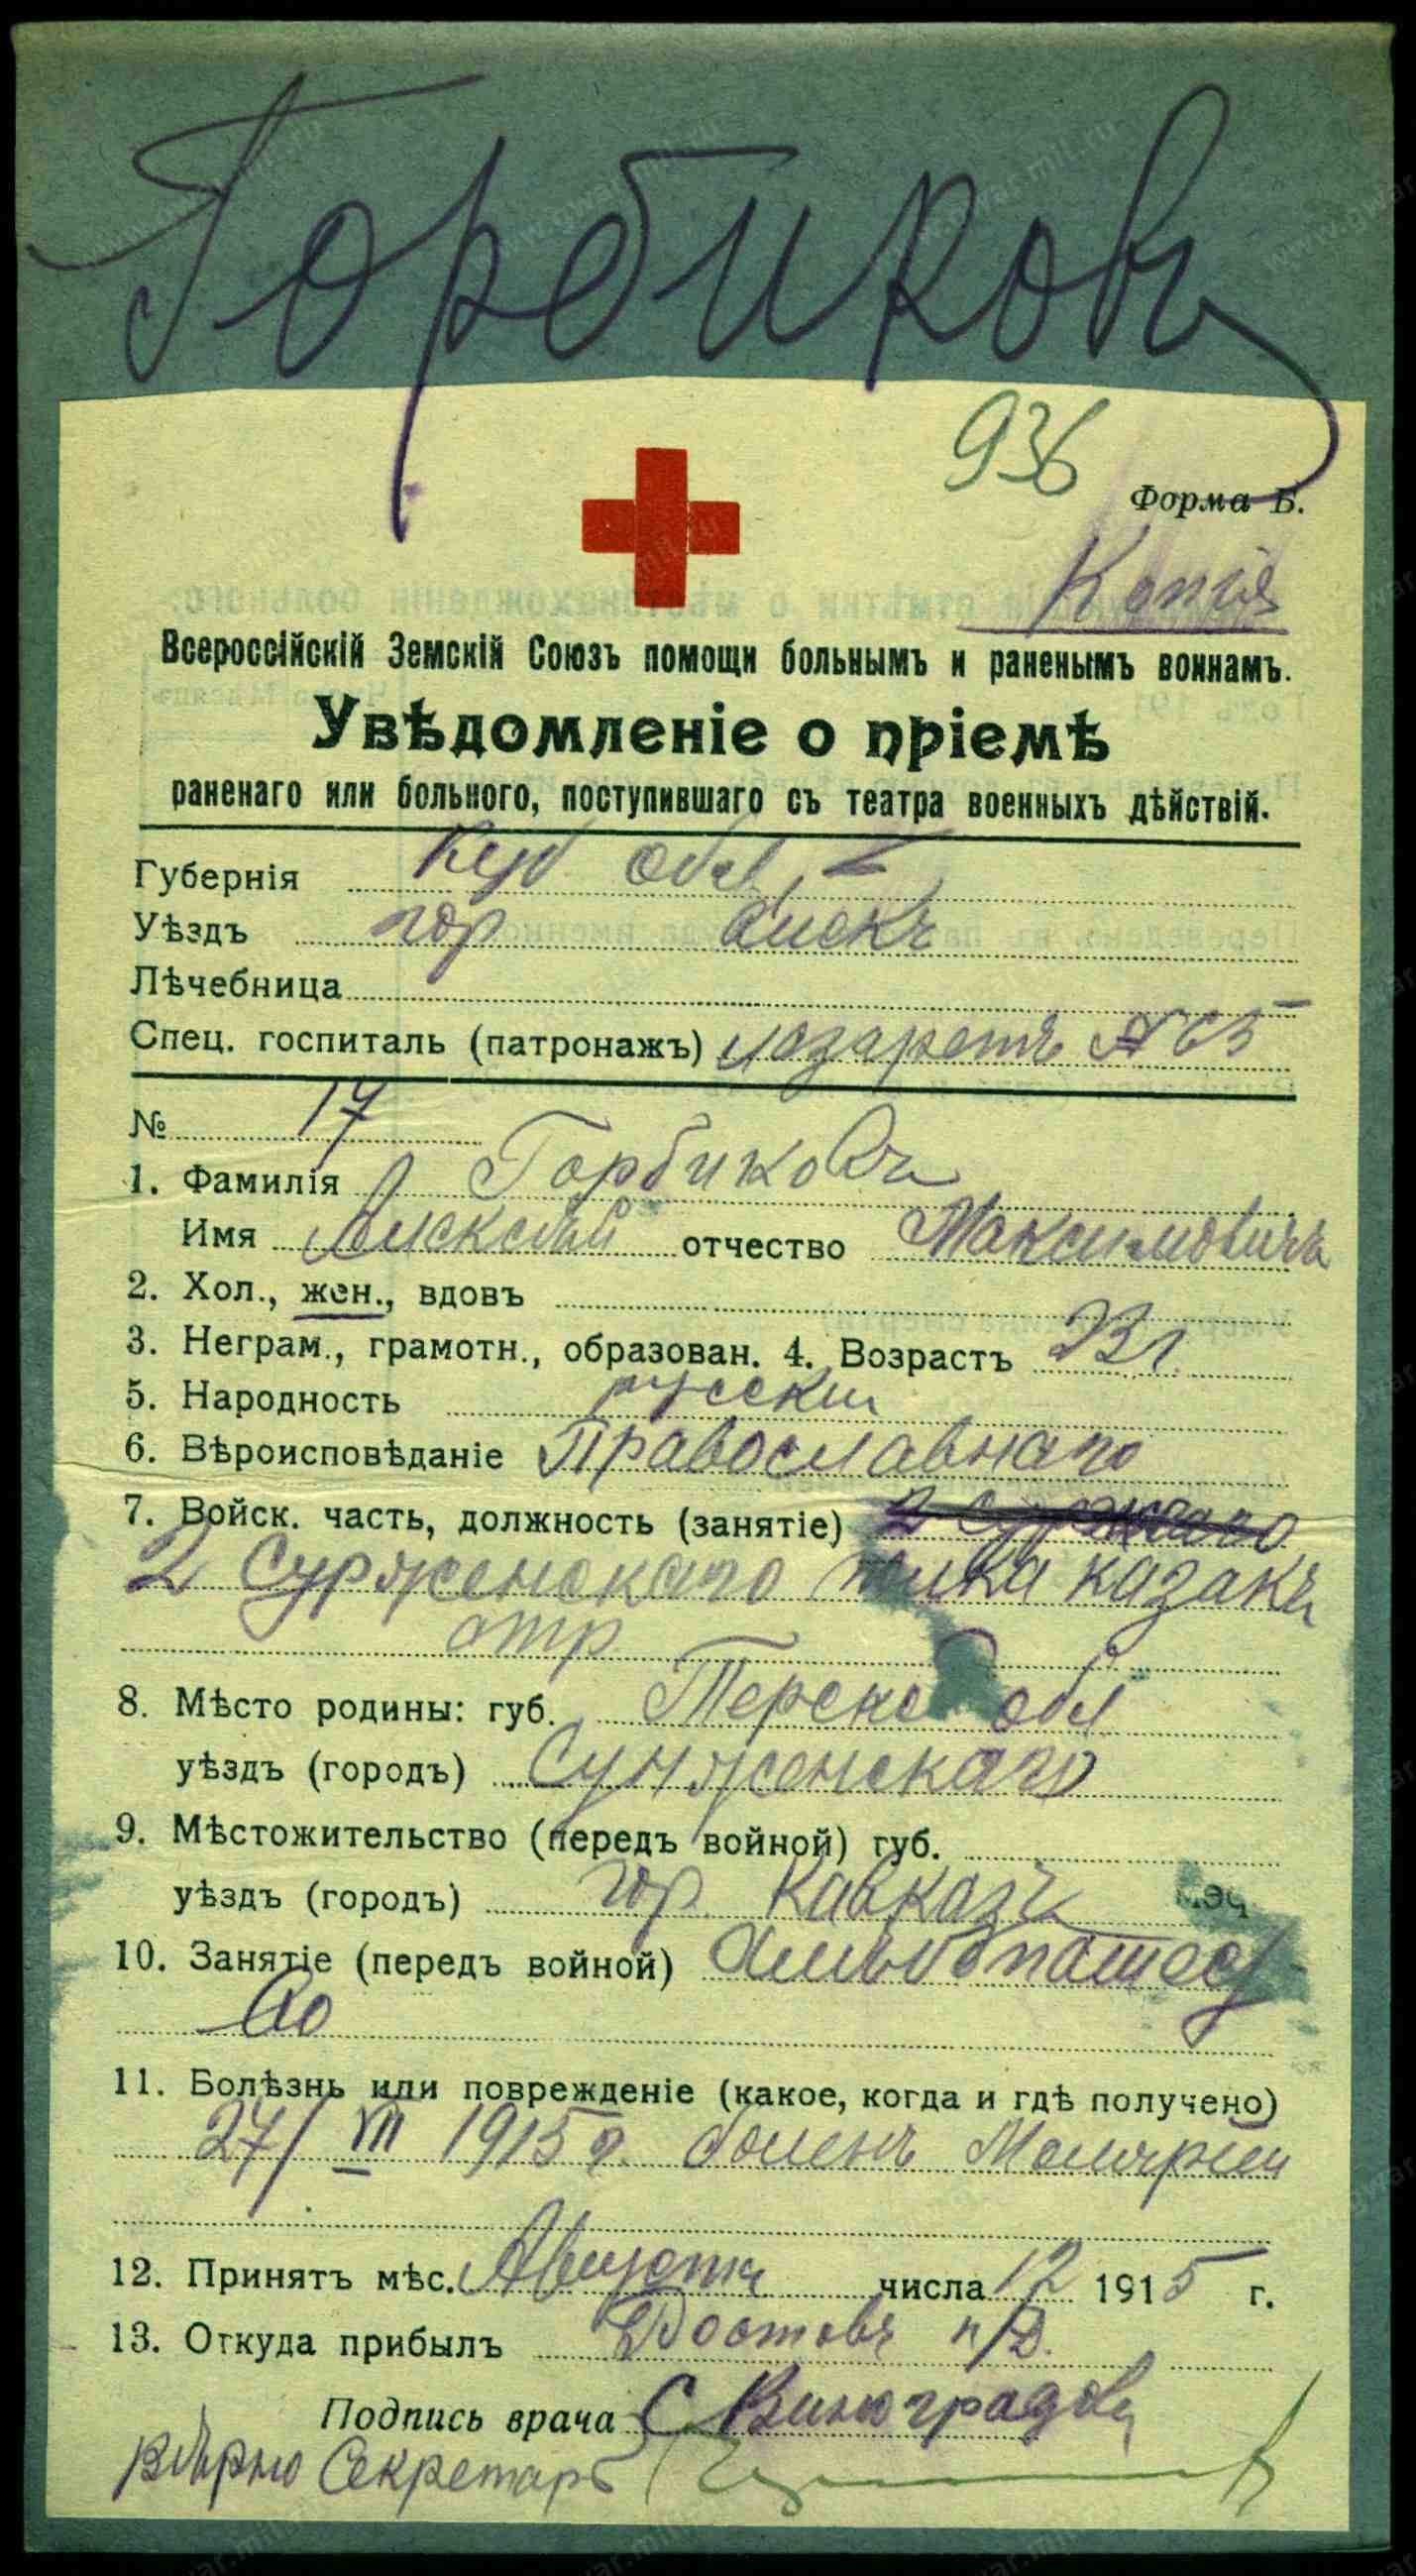 Горбиковъ
936
Форма Б.
Копія
Всероссійскій Земскій Союзъ помощи больнымъ и раненымъ воинамъ.
Увѣдомленіе о пріемѣ
раненаго или больного, поступившаго съ театра военныхъ дѣйствій.
Губернія Куб обл,
Уѣздъ гор
Лѣчебница
Спец. госпиталь (патронажъ) лазаретъ №
№ 17
1. Фамилія Горбиковъ
Имя Алексѣй отчество Максимовичъ
2. Хол., жен., вдовъ
3. Неграм., грамотн., образован. 4. Возрастъ 23 г.
5. Народность русский
6. Вѣроисповѣданіе Православнаго
7. Войск. часть, должность (занятіе)
2 Сунженскаго полка казакъ
8. Мѣсто родины: губ. Терско обл
уѣздъ (городъ) Сунженскаго
9. Мѣстожительство (передъ войной) губ.
уѣздъ (городъ) гор. Кавказъ
10. Занятіе (передъ войной) Хлѣбопашест
во
11. Болѣзнь или поврежденіе (какое, когда и гдѣ получено)
27/VII 1915 г. боленъ Маляріей
12. Принятъ мѣс. Августъ числа 12 1915 г.
13. Откуда прибылъ Ростовъ н/Д.
Подпись врача С Виноградовъ
Вѣрно Секретарь